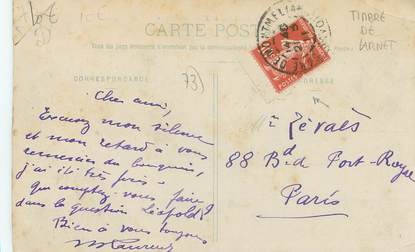 10€
10€
TIMBRE
DE
CARNET
CARTE POSTALE
CORRESPONDANCE
ADRESSE
73)
Cher ami,
Excusez mon silence
et mon retard à vous
remercier du bouquin,
j'ai été très pris.
que comptez-vous faire?
dans la question Léopold?
Bien à vous toujours
M Laurent
Zévaès
88 Bd. Port-Royal
Paris